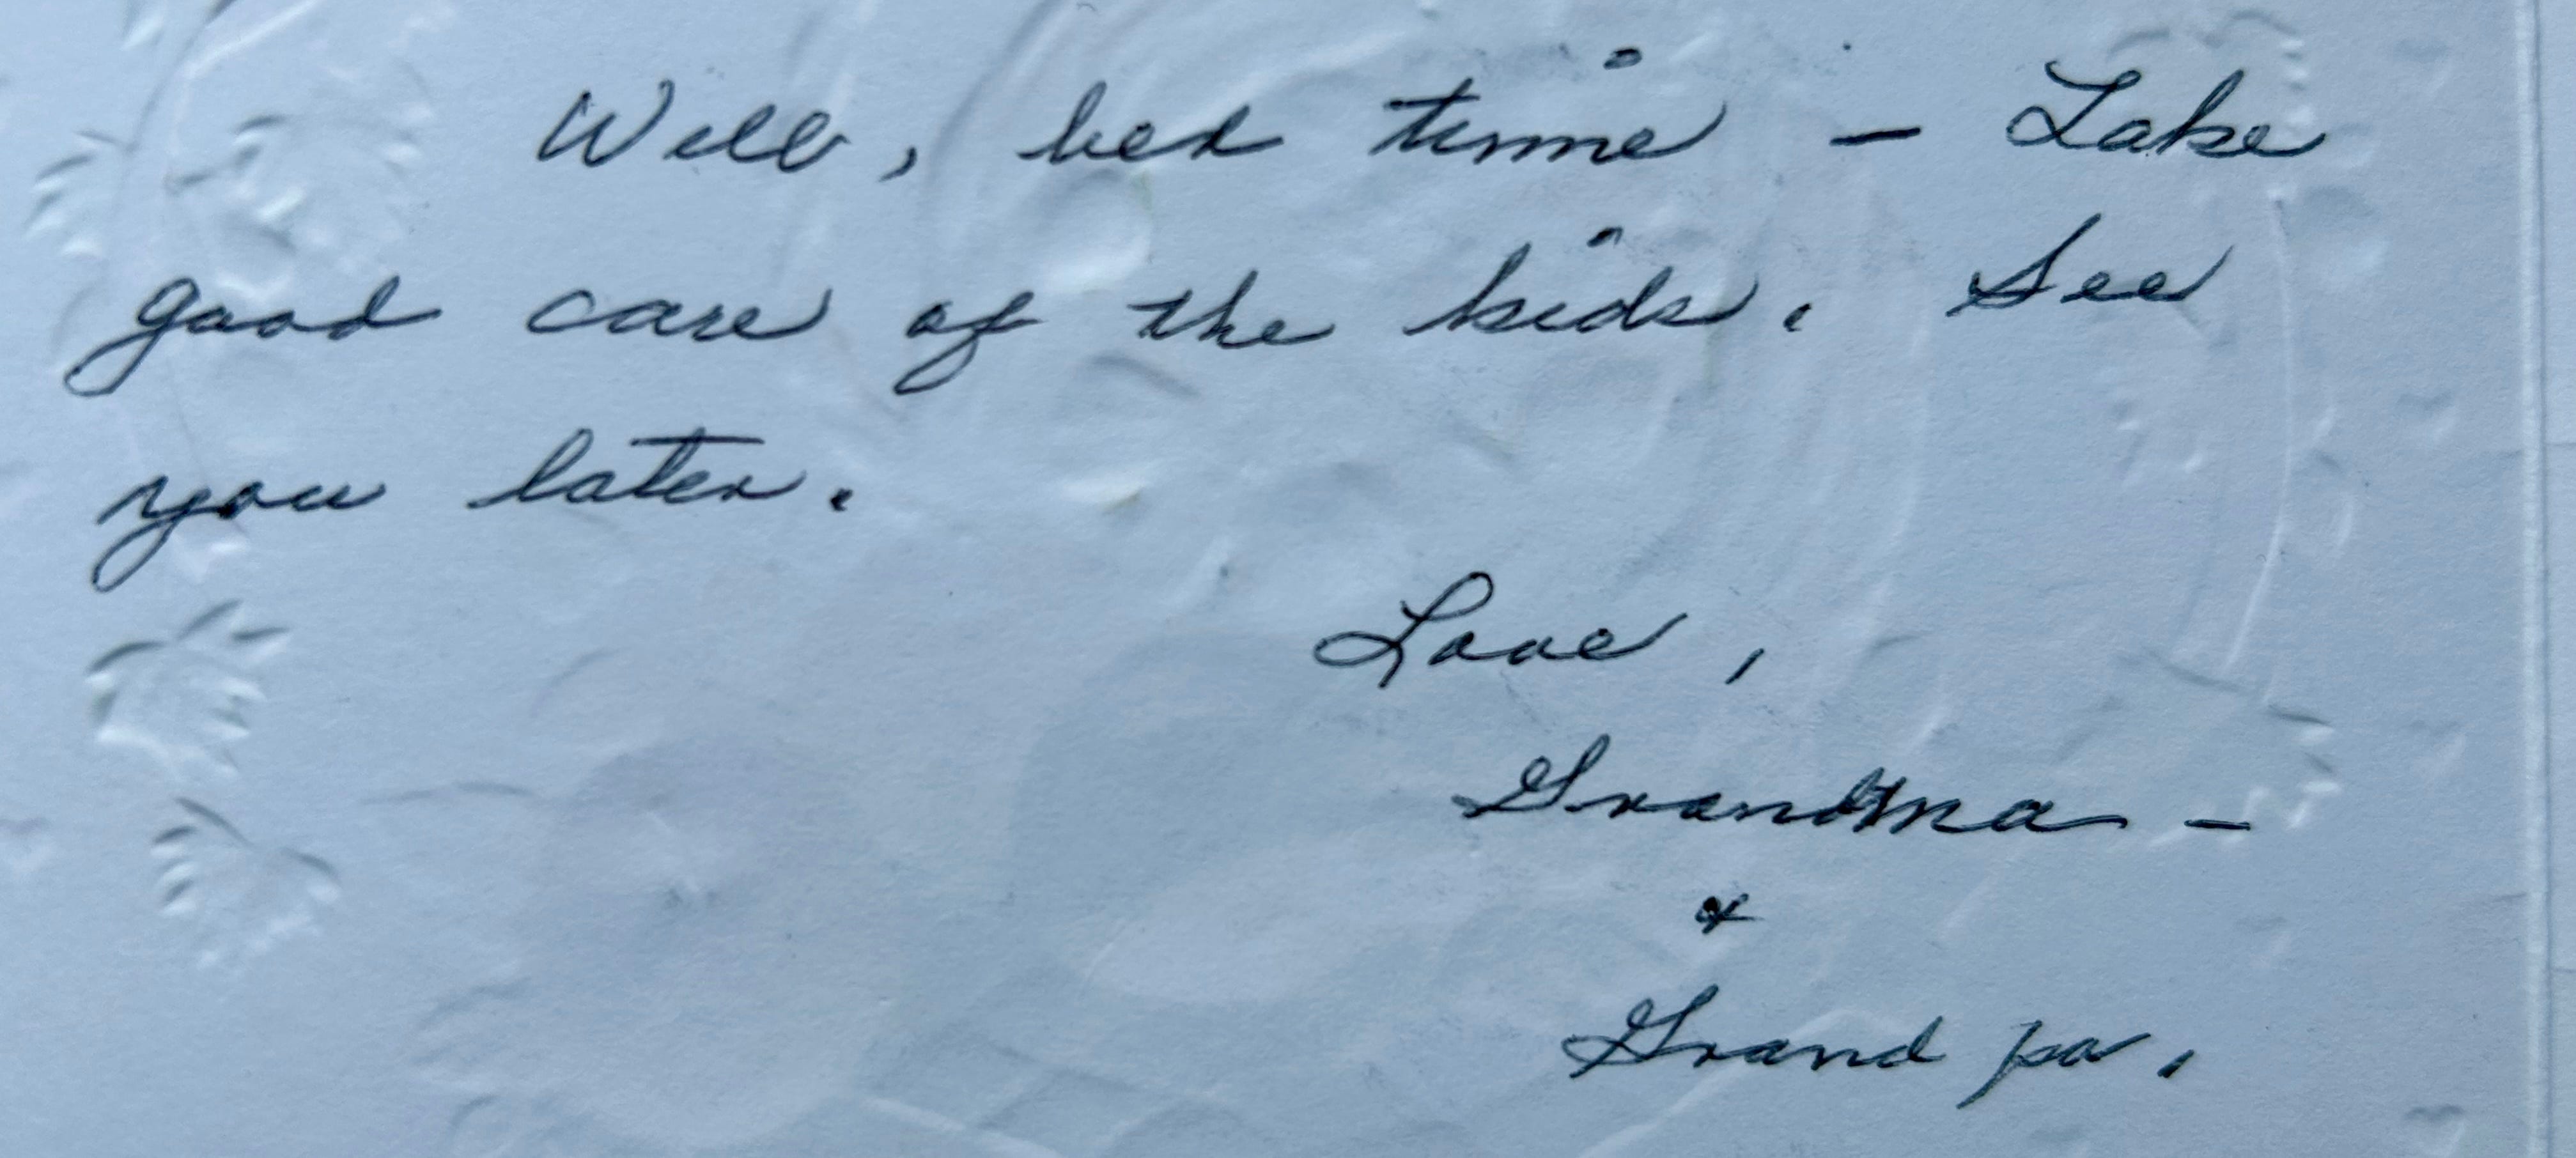 Well, bed time – Take
good care of the kids. See
you later.
Love,
Grandma –
&
Grand pa.